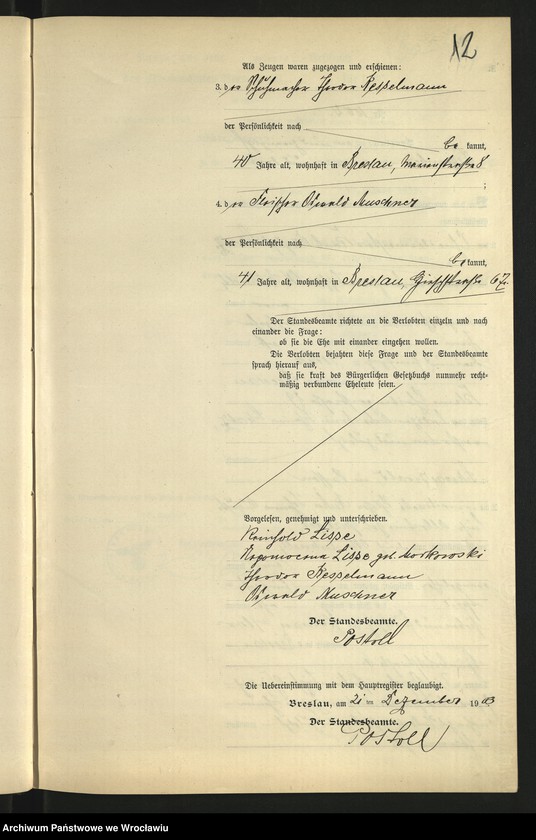 12
Als Zeugen waren zugezogen und erschienen:
3. der Schuhmacher Theodor Kesselmann
der Persönlichkeit nach
be kannt,
40 Jahre alt, wohnhaft in Breslau, Marienstraße 8
4. der Fleischer Oswald Muschner
der Persönlichkeit nach
be kannt,
41 Jahre alt, wohnhaft in Breslau, Hirschstraße 67.
Der Standesbeamte richtete an die Verlobten einzeln und nach
einander die Frage:
ob sie die Ehe mit einander eingehen wollen.
Die Verlobten bejahten diese Frage und der Standesbeamte
sprach hierauf aus,
daß sie kraft des Bürgerlichen Gesetzbuchs nunmehr recht-
mäßig verbundene Eheleute seien.
Vorgelesen, genehmigt und unterschrieben.
Reinhold Lippe
Lippe geb.
Theodor Kesselmann
Oswald Muschner
Der Standesbeamte.
Postoll
Die Uebereinstimmung mit dem Hauptregister beglaubigt.
Breslau, am 21 ten Dezember 1903
Der Standesbeamte.
Postoll
Archiwum Państwowe we Wrocławiu